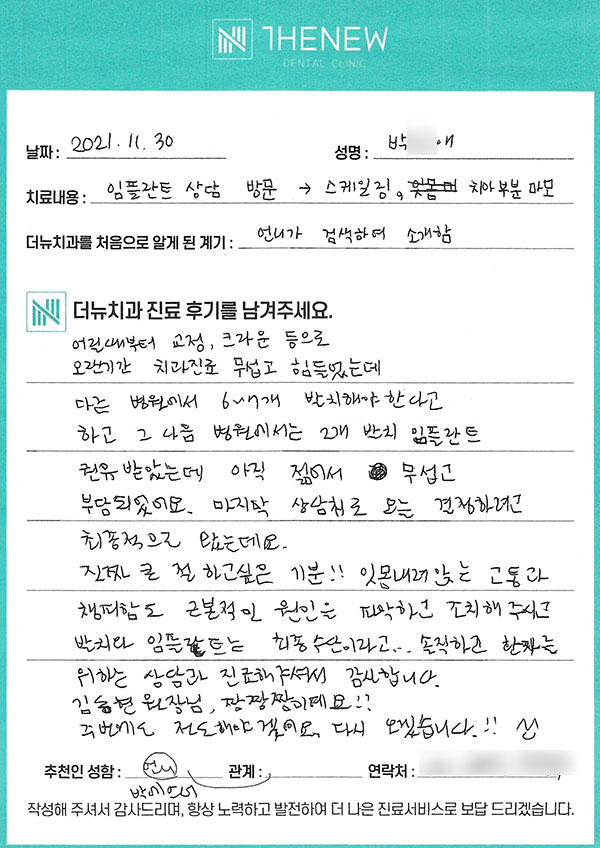 THENEW
DENTAL CLINIC
날짜 : 2021. 11. 30 성명 : 박 애
치료내용 : 임플란트 상담 방문 → 스케일링, 치아부분 마모
더뉴치과를 처음으로 알게 된 계기 : 언니가 검색하여 소개함
더뉴치과 진료 후기를 남겨주세요.
어릴때부터 교정, 크라운 등으로
오랜기간 치과진료 무섭고 힘들었는데
다른 병원에서 6~7개 발치해야 한다고
하고 그 다음 병원에서는 2개 발치 임플란트
권유 받았는데 아직 젊어서 무섭고
부담되었어요. 마지막 상담처로 오늘 결정하려고
최종적으로 왔는데요.
진짜 큰 절 하고싶은 기분!! 잇몸내려앉는 고통과
챙피함도 근본적인 원인은 파악하고 조치해 주시고
발치와 임플란트는 최종수단이라고... 솔직하고 환자를
위하는 상담과 진료해주셔서 감사합니다.
김승현 원장님, 짱짱짱이예요!!
주변에도 전도해야겠어요. 다시 오겠습니다.!!
추천인 성함 : 언니 관계 : 연락처 :
작성해 주셔서 감사드리며, 항상 노력하고 발전하여 더 나은 진료서비스로 보답 드리겠습니다.